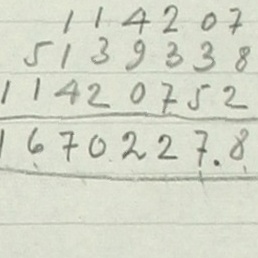 114207
5139338
11420752
1670227.8